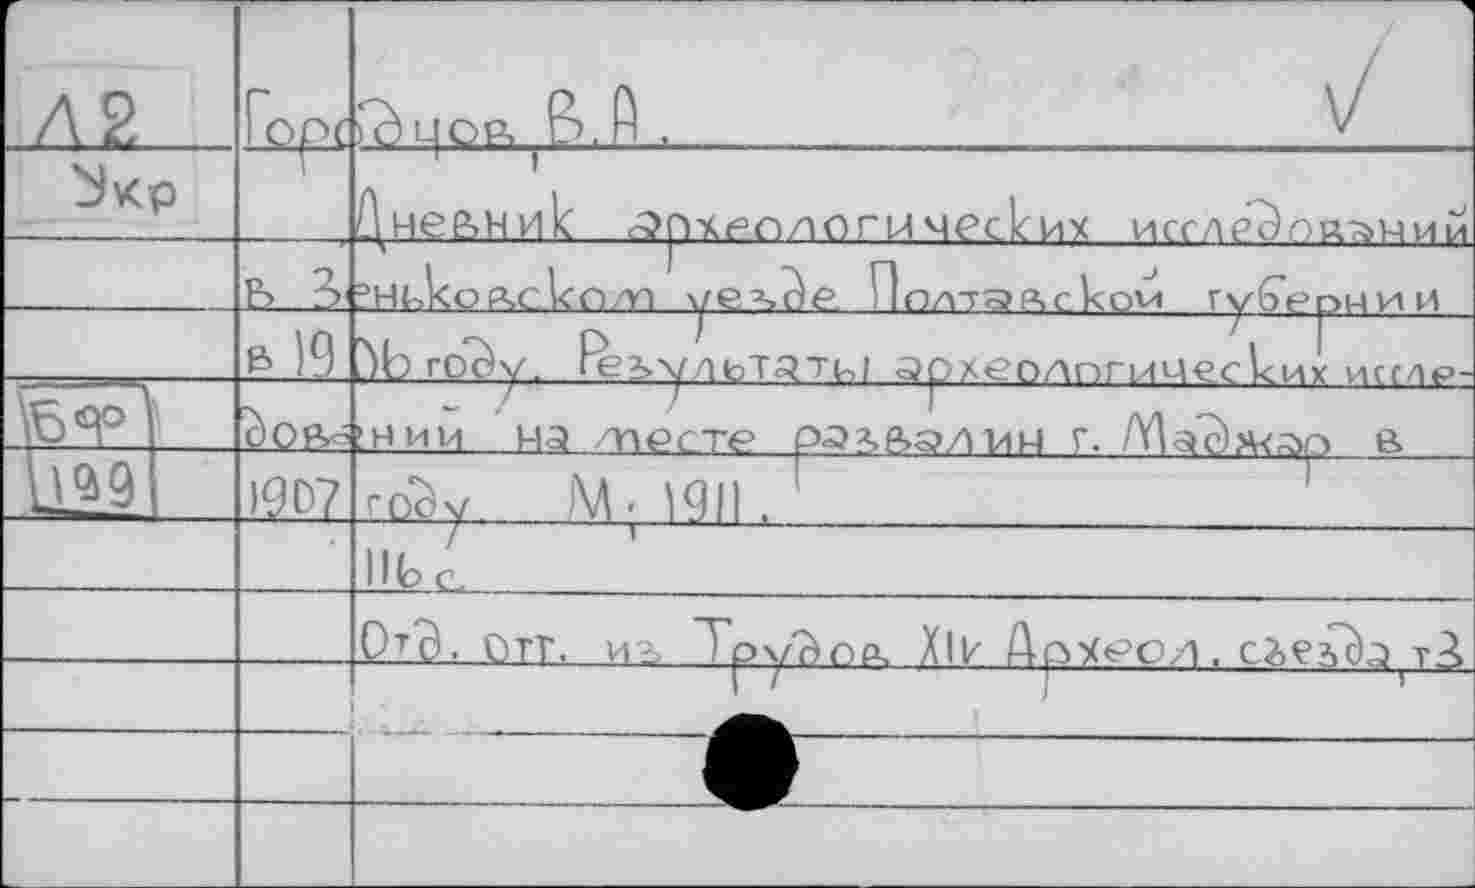 Л2 Городцов, В.А. √
Укр Дневник археологических исследований
в Зеньковском уезде Полтавской губернии
в 1906 году. Результаты археологических иссле-
Бф дований на месте развалин г. Маджар в
1199 1907 году М., 1911.
116 с.
Отд. отт. из Трудов XIV Археол. съезда, т3